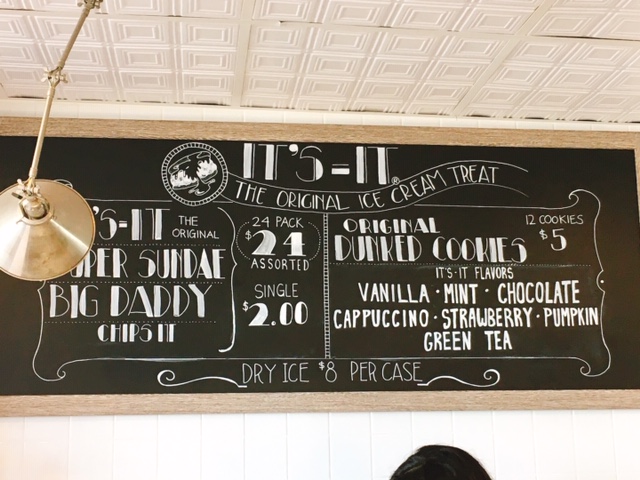 IT'S-IT®
THE ORIGINAL ICE CREAM TREAT
'S-IT THE ORIGINAL
SUNDAE
BIG DADDY
CHIPS IT
24 PACK
$24
ASSORTED
SINGLE
$2.00
ORIGINAL
DUNKED COOKIES
12 COOKIES
$5
IT'S-IT FLAVORS
VANILLA · MINT · CHOCOLATE
CAPPUCCINO · STRAWBERRY · PUMPKIN
GREEN TEA
DRY ICE $8 PER CASE